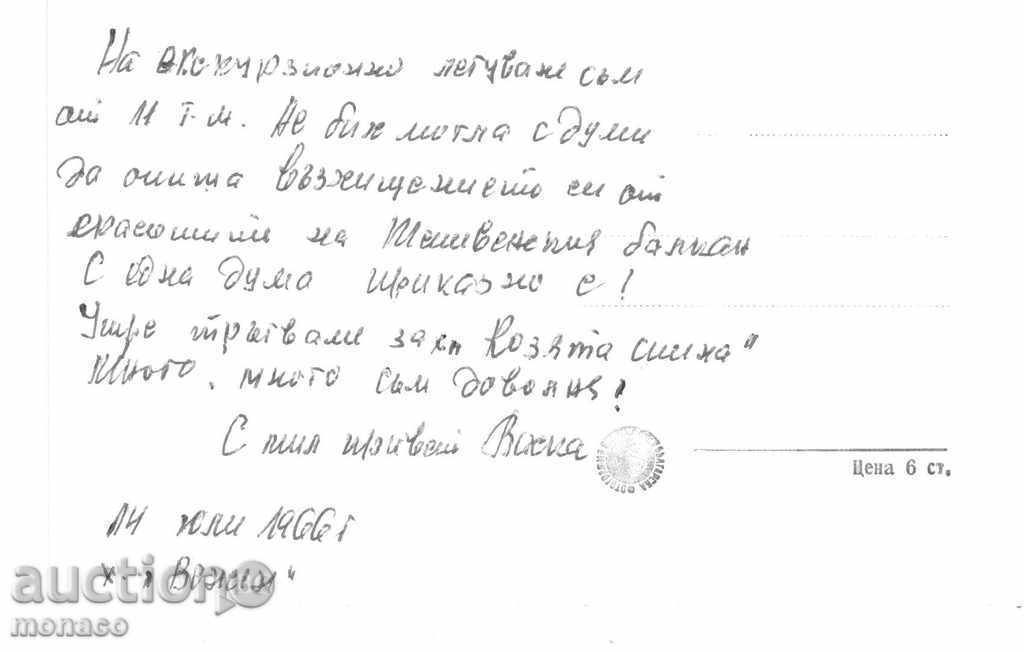 На екскурзионно летуване съм
от 11 т.м. Не бих могла с думи
да опиша възхищението си от
красотите на Тетевенския балкан
С една дума приказно е!
Утре тръгваме за х."Козята стена"
Много, много съм доволна!
С мил привет
Цена 6 ст.
14 юли 1966 г
х-а Вежен"
auction
monaco